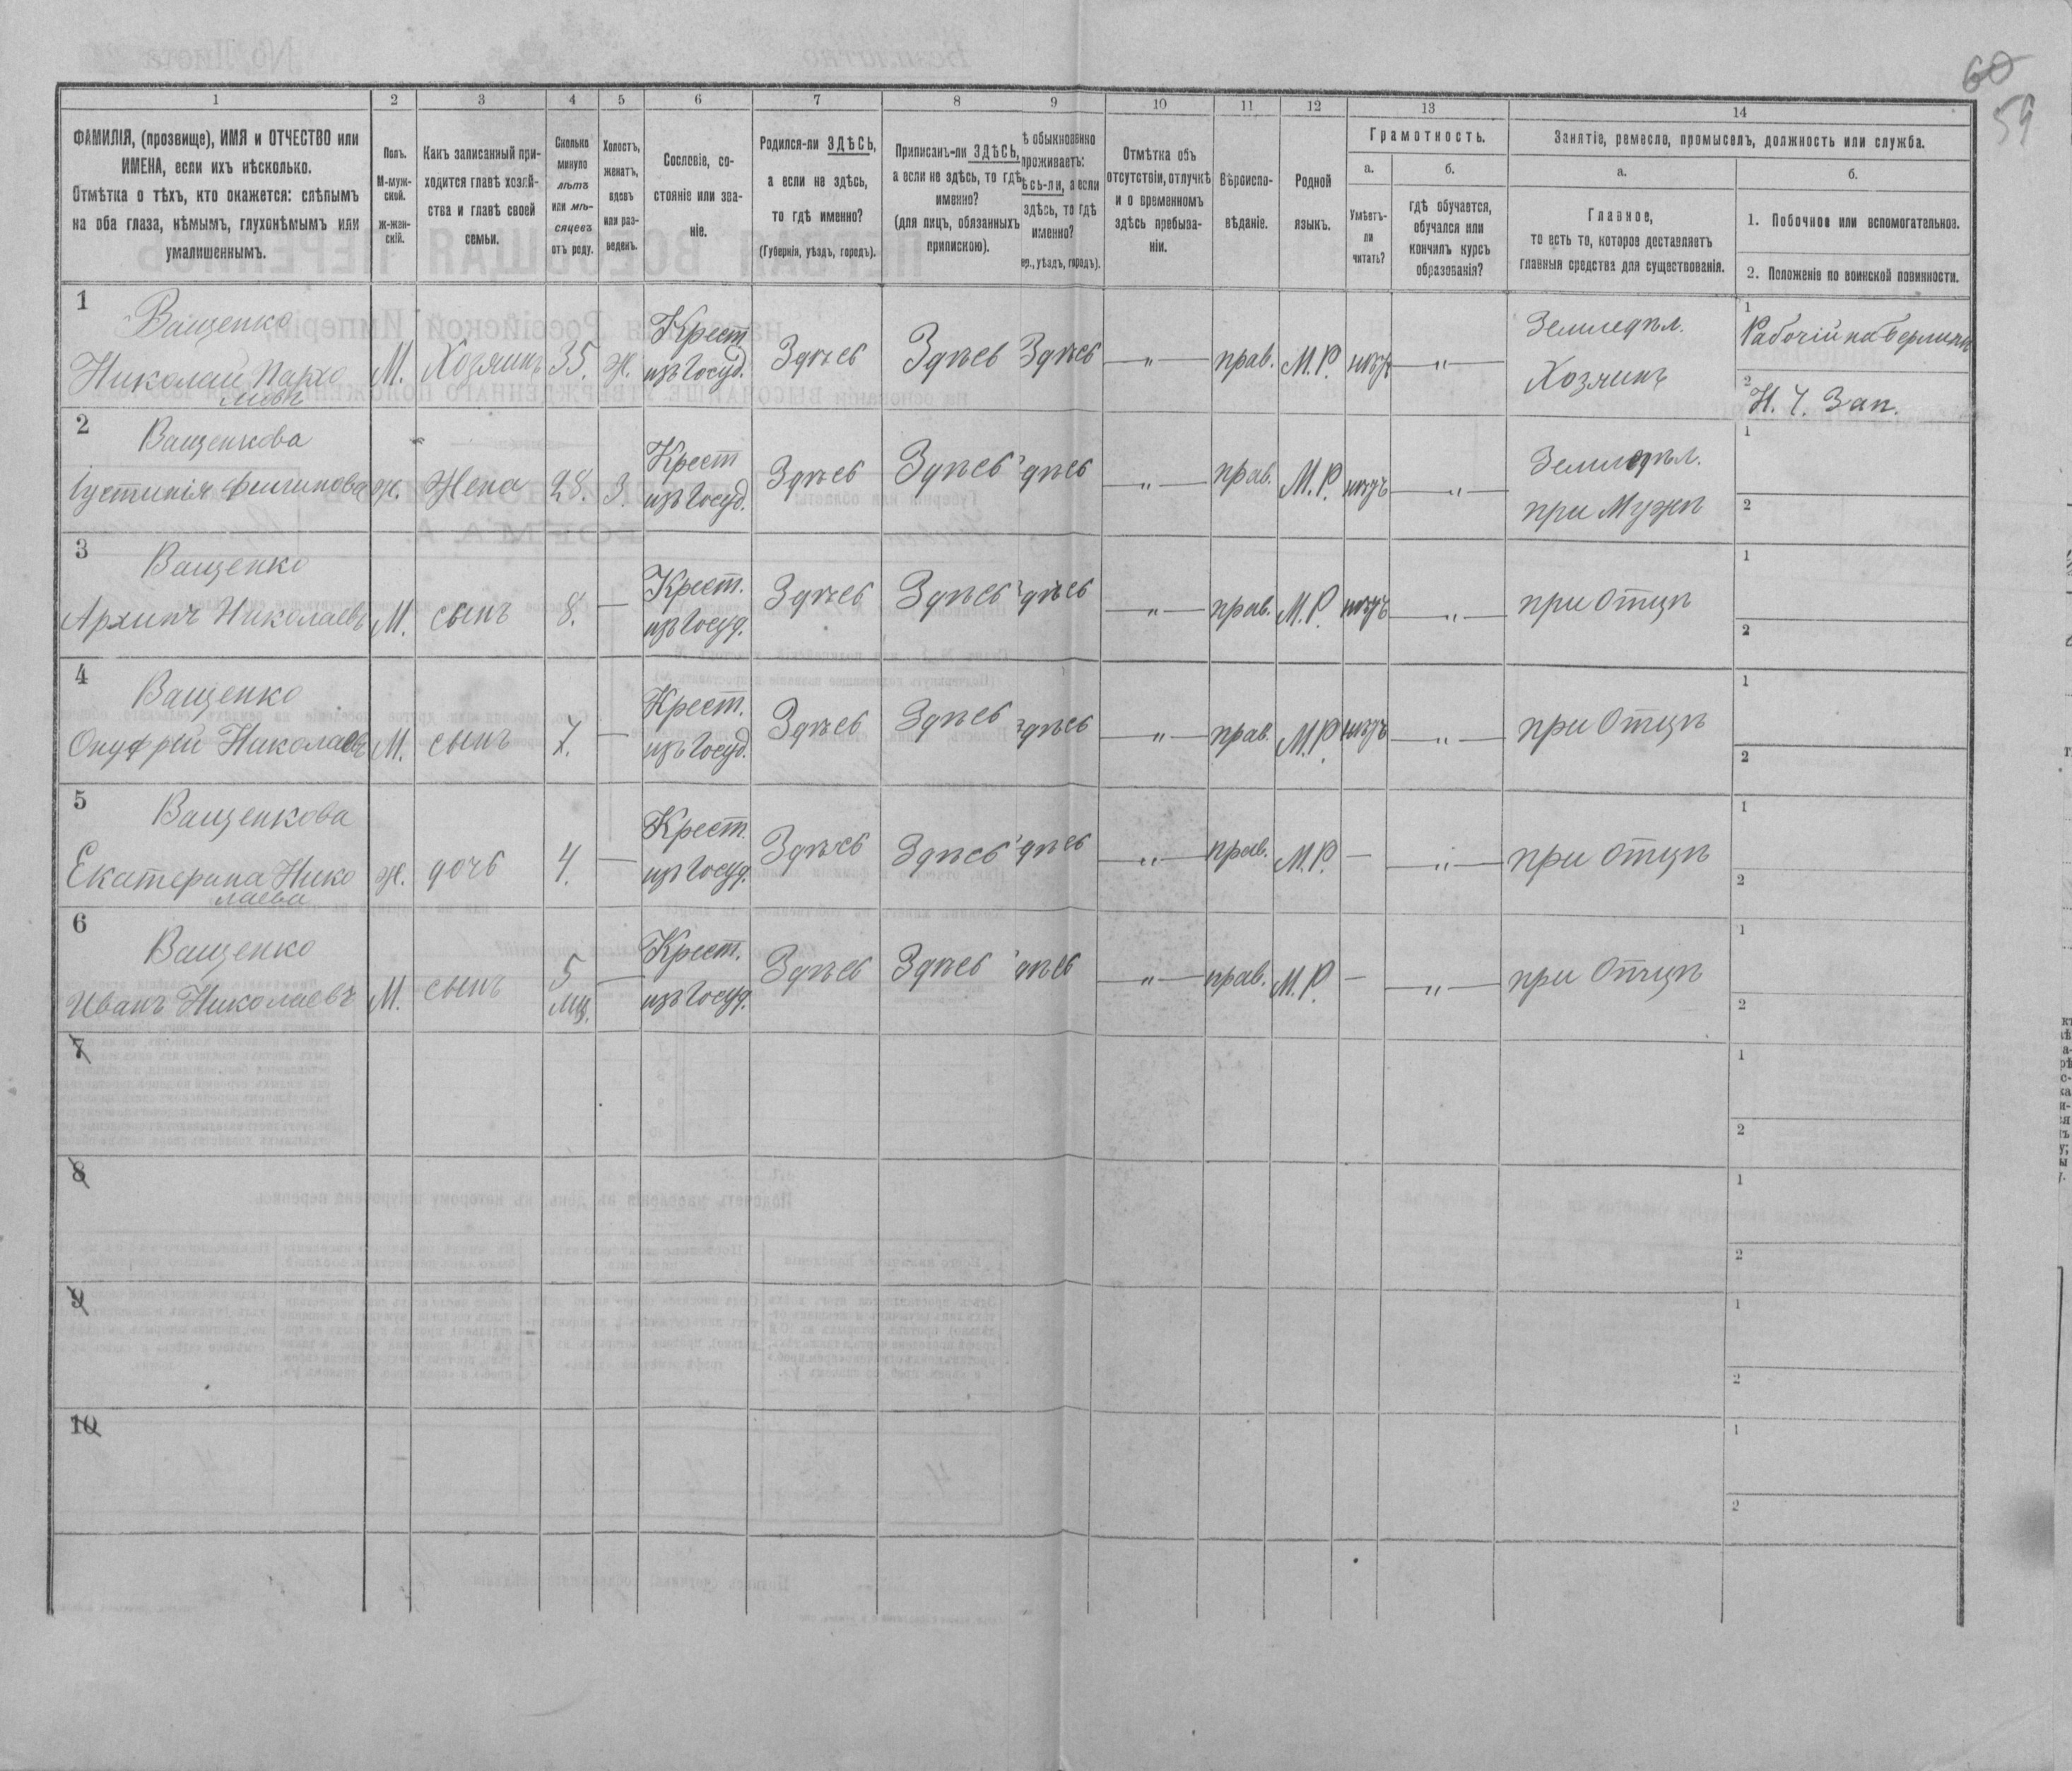 60
59
1 2 3 4 5 6 7 8 9 10 11 12 13 14
ФАМИЛІЯ, (прозвище), ИМЯ и ОТЧЕСТВО или
ИМЕНА, если ихъ нѣсколько.
Отмѣтка о тѣхъ, кто окажется: слѣпымъ
на оба глаза, нѣмымъ, глухонѣмымъ или
умалишеннымъ.
Полъ.
М-муж-
ской.
ж-жен-
скій.
Какъ записанный при-
ходится главѣ хозяй-
ства и главѣ своей
семьи.
Сколько
минуло
лѣтъ
или мѣ-
сяцевъ
отъ роду.
Холостъ,
женатъ,
вдовъ
или раз-
веденъ.
Сословіе, со-
стояніе или зва-
ніе.
Родился-ли ЗДѢСЬ,
а если не здѣсь,
то гдѣ именно?
(Губернія, уѣздъ, городъ).
Приписанъ-ли ЗДѢСЬ,
а если не здѣсь, то гдѣ
именно?
(для лицъ, обязанныхъ
припискою).
ѣ обыкновенно
проживаетъ:
ѣсь-ли, а если
здѣсь, то гдѣ
именно?
ер., уѣздъ, городъ).
Отмѣтка объ
отсутствіи, отлучкѣ
и о временномъ
здѣсь пребыва-
ніи.
Вѣроиспо-
вѣданіе.
Родной
языкъ.
Грамотность.
а.
Умѣетъ-
ли
читать?
б.
гдѣ обучается,
обучался или
кончилъ курсъ
образованія?
Занятіе, ремесло, промыселъ, должность или служба.
а.
Главное,
то есть то, которое доставляетъ
главныя средства для существованія.
б.
1. Побочное или вспомогательное.
2. Положеніе по воинской повинности.
1
Ващенко
Николай Пархо
міевъ
М. Хозяинъ 35. ж.
Крест
изъ Госуд.
Здѣсь Здѣсь Здѣсь — " — прав. М.Р. нѣтъ — " —
Земледѣл.
Хозяинъ
1
Рабочій на
2
Н. Ч. Зап.
2
Ващенкова
Іустинія
ж. Жена 28. З.
Крест
изъ Госуд.
Здѣсь Здѣсь здѣсь — " — прав. М.Р. нѣтъ — " —
Земледѣл.
при Мужѣ
1
2
3
Ващенко
Архипъ Николаевъ
М. сынъ 8. —
Крест.
изъ Госуд.
Здѣсь Здѣсь здѣсь — " — прав. М.Р. нѣтъ — " — при Отцѣ
1
2
4
Ващенко
Онуфрій Николаевъ
М. сынъ 7. —
Крест.
изъ Госуд.
Здѣсь Здѣсь здѣсь — " — прав. М.Р. нѣтъ — " — при Отцѣ
1
2
5
Ващенкова
Екатерина Нико
лаева
ж. дочь 4. —
Крест.
изъ Госуд.
Здѣсь Здѣсь здѣсь — " — прав. М.Р. — — " — при Отцѣ
1
2
6
Ващенко
Иванъ Николаевъ
М. сынъ 5 мц. —
Крест.
изъ Госуд.
Здѣсь Здѣсь здѣсь — " — прав. М.Р. — — " — при Отцѣ
1
2
7
1
2
8
1
2
9
1
2
10
1
2